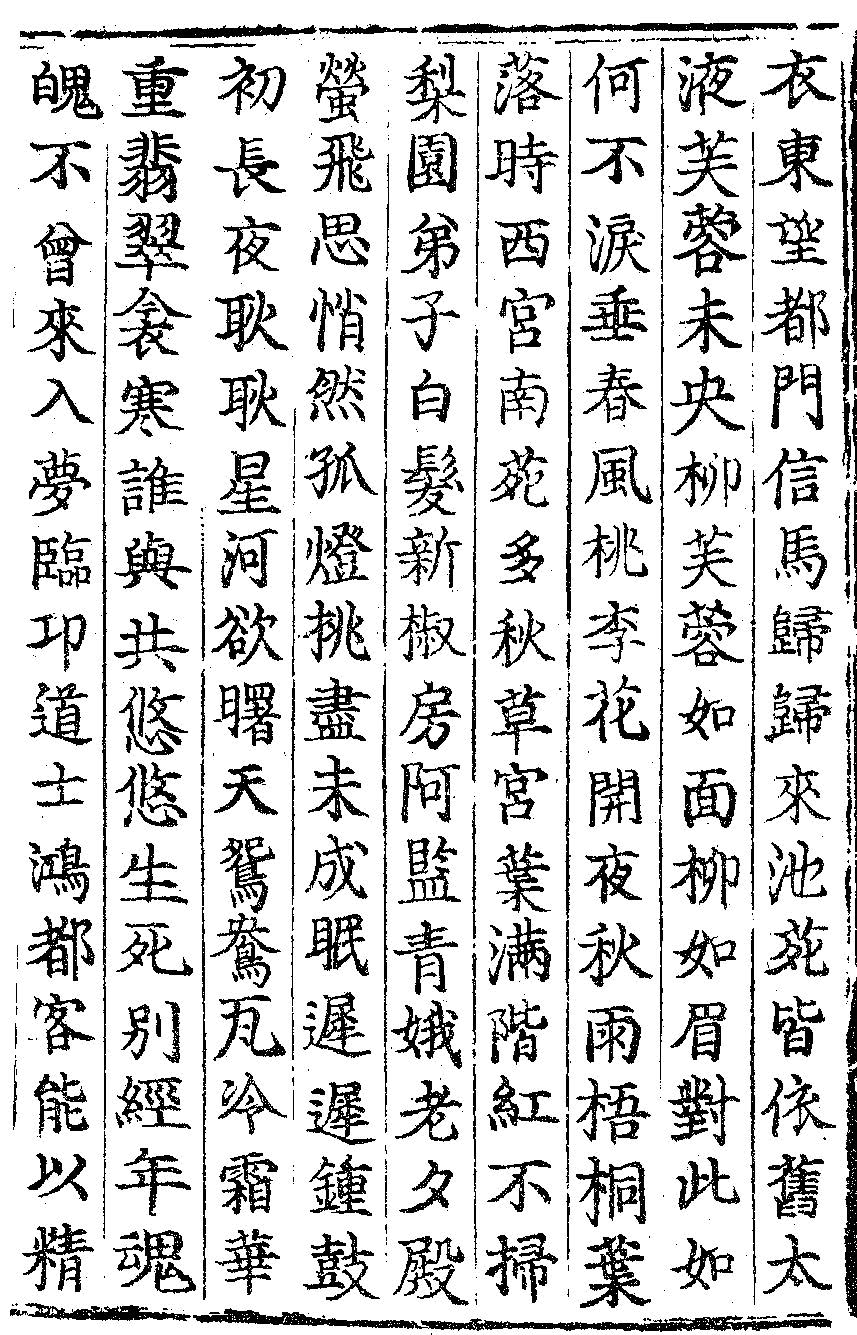 衣東望都門信馬歸歸來池苑皆依舊太
液芙蓉未央柳芙蓉如面柳如眉對此如
何不淚垂春風桃李花開夜秋雨梧桐葉
落時西宮南苑多秋草宮葉滿階紅不掃
梨園弟子白髮新椒房阿監青娥老夕殿
螢飛思悄然孤燈挑盡未成眠遲遲鍾鼓
初長夜耿耿星河欲曙天鴛鴦瓦冷霜華
重翡翠衾寒誰與共悠悠生死別經年魂
魄不曾來入夢臨邛道士鴻都客能以精